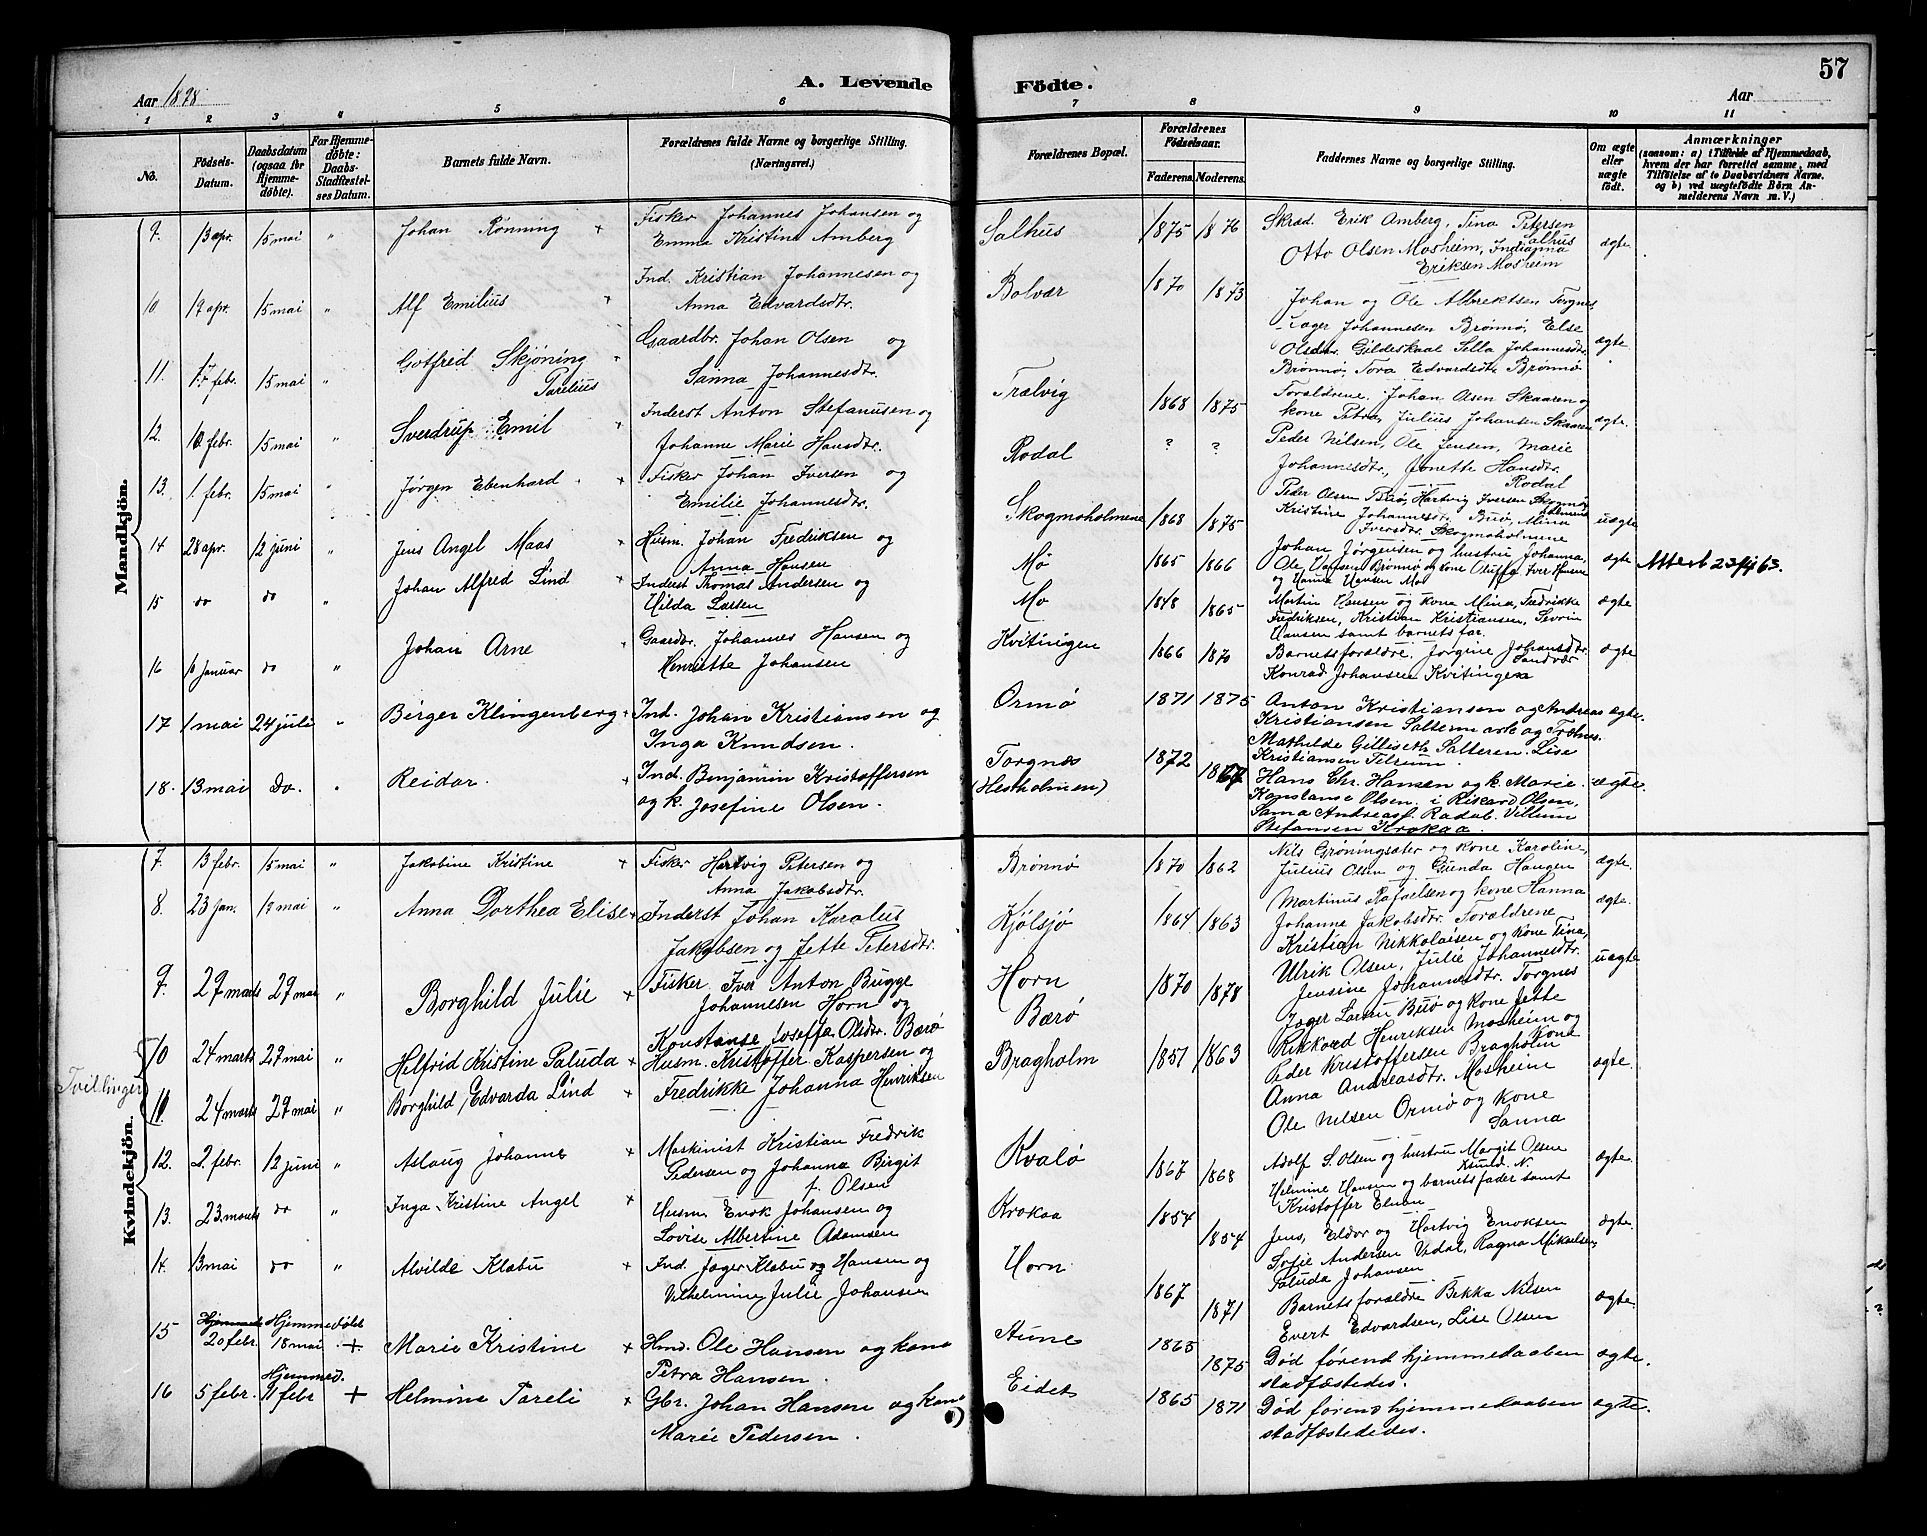 Aar 1898
A. Levende
Födte.
57
Aar
1 2 3 4 5 6 7 8 9 10 11
No.
Födsels-Datum.
Daabsdatum (ogsaa for Hjemmedöbte).
For Hjemmedöbte: Daabs-Stadfæstelses Datum.
Barnets fulde Navn.
Forældrenes fulde Navne og borgerlige Stilling. (Næringsvei.)
Forældrenes Bopæl.
Forældrenes Födselsaar.
Faderens. Moderens.
Faddernes Navne og borgerlige Stilling.
Om ægte eller uægte födt.
Anmærkninger
(saasom: a) i Tilfælde af Hjemmedaab, hvem der har forrettet samme, med Tilföielse af to Daabsvidners Navne, og b) ved uægtefödte Börn Anmelderens Navn m. V.)
Mandkjön.
9. 13 apr. 15 mai " Johan Rønning + Fisker Johannes Johansen og
Emma Kristine Amberg
Salhus 1875 1876 Skræd. Erik Amberg, Tina Petersen Salhus
Otto Olsen Mosheim, Indianna
Eriksen Mosheim
ægte
10 19 apr. 15 mai " Alf Emilius + Ind. Kristian Johannesen og
Anna Edvardsdtr.
Bolvær 1870 1873 Johan og Ole Albrektsen Torgnes,
Jager Johannesen Brønnø, Else
Olsdtr. Gildeskaal Sella Johannesdtr.
Brønnø, Tora Edvardsdtr Brønnø
ægte
11. 17 febr. 15 mai " Gotfred Skjøning Parelius + Gaardbr. Johan Olsen og
Sanna Johannesdtr.
Trælvig 1868 1875 Forældrene, Johan Olsen Skaaren og
kone Petra, Julius Johansen Skaaren
ægte.
12. 10 febr. 15 mai " Sverdrup Emil + Inderst Anton Stefanusen og
Johanne Marie Hansdtr.
Rodal ? ? Peder Nilsen, Ole Jensen, Marie
Johannesdtr., Jonette Hansdtr.
Rodal
13. 1. febr. 15 mai " Jørgen Ebenhard + Fisker Johan Iversen og
Emilie Johannesdtr.
Skogmoholmene 1868 1875 Peder Olsen Buø, Hartvig Iversen Skogmoholmene
Kristine Johannesdtr. Buø, Mina
Iversdtr. Skogmoholmene
uægte
14 28 apr. 12 juni " Jens Angel Maas + Husm. Johan Fredriksen og
Anna Hansen
Mo 1865 1866 Johan Jørgensen og hustru Johanna,
Ole Hansen Brønnø og kone Oluffa Iver Hansen
og Hanna Hansen Mo
ægte
15 do do " Johan Alfred Lind + Inderst Thomas Andersen og
Hilda Larsen
Mo 1848 1865 Martin Hansen og kone Mina, Fredrikke
Fredriksen, Kristian Kristiansen, Severin
Hansen samt barnets far.
ægte
16 10 januar do " Johan Arne + Gaardbr. Johannes Hansen og
Henriette Johansen
Kvitingen 1866 1870 Barnets forældre. Jorgine Johansdtr. Sandvær
Konrad Johansen Kvitingen
ægte
17 1 mai 24 juli " Birger Klingenberg + Ind. Johan Kristiansen og
Inga Knudsen.
Ormø 1871 1875 Anton Kristiansen og Andreas
Kristiansen
Mathilde Lise
Kristiansen
ægte.
18. 13 mai Do. " Reidar. + Ind. Benjamin Kristoffersen
og k. Josefine Olsen.
Torgnes (Hestholmen) 1872 1867 Hans Chr. Hansen og k. Marie.
Konstanse Olsen. i Rikard Olsen,
Sanna Andreasf. Rodal. Villum
Stefansen Krokaa.
ægte.
Kvindekjön.
7. 13 febr. 15 mai " Jakobine Kristine + Fisker Hartvig Petersen og
Anna Jakobsdtr.
Brønnø 1870 1862 Nils Grøningsæter og kone Karoline,
Julius Olsen og Gunda Haugen
ægte
8. 23 jan. 19 mai " Anna Dorthea Elise + Inderst Johan Karolus
Jakobsen og Jette Petersdtr.
Kjølsjø 1864 1863 Martinus Rafaelsen og kone Hanna
Johanne Jakobsdtr. Forældrene
Kristian Nikkolaisen og kone Tina,
ægte.
9. 29 marts 29 mai " Borghild Julie + Fisker Iver Anton Bugge
Johannesen Horn og
Konstanse Joseffa Olsdtr. Bærø
Horn
Bærø 1870 1878 Ulrik Olsen, Julie Johannesdtr.
Jensine Johannesdtr. Torgnes
Jager Larsen Buø og kone Jette
uægte
Tvillinger
10 24 marts 29 mai " Helfrid Kristine Paluda + Husm. Kristoffer Kaspersen og
Fredrikke Johanna Henriksen
Bragholm 1857 1863 Rikkard Henriksen Mosheim og
Peder Kristoffersen Bragholm kone
Anna Andreasdtr. Mosheim
Ole Nilsen Ormø og kone
Sanna
ægte
11 24 marts 29 mai " Borghild Edvarda Lind +
12. 2. febr. 12 juni " Aslaug Johanne + Maskinist Kristian Fredrik
Pedersen og Johanna Birgit
f. Olsen
Kvalø 1867 1868 Adolf S. Olsen og hustru Margit Olsen
Helmine Hansen og barnets fader samt
Kristoffer
ægte.
13. 23. marts do " Inga Kristine Angel + Husm. Enok Johansen og
Lovise Albertine Adamsen
Krokaa 1854 1854 Jens, Eldor og Hartvig Enoksen
Sofie Andersen Vedal, Ragna Mikaelsen,
Paluda Johansen
ægte
14. 13 mai do " Alvilde Klæbu + Ind. Jager Klæbu og Hansen og
Vilhelmine Julie Johansen
Horn 1867 1871 Barnets forældre Bekka Nilsen
Evert Edvardsen, Lise Olsen
ægte
15 20 febr. Hjemmedøbt 18 mai + Marie Kristine + Hmd. Ole Hansen og kone
Petra Hansen.
Aune 1865 1875 Død førend hjemmedaaben
stadfæstedes.
ægte.
16 5 febr. Hjemmed. 11 febr + Helmine Pareli + Gbr. Johan Hansen og kone
Marie Pedersen.
Eidet 1865 1871 Død førend hjemmedaaben
stadfæstededes.
ægte.